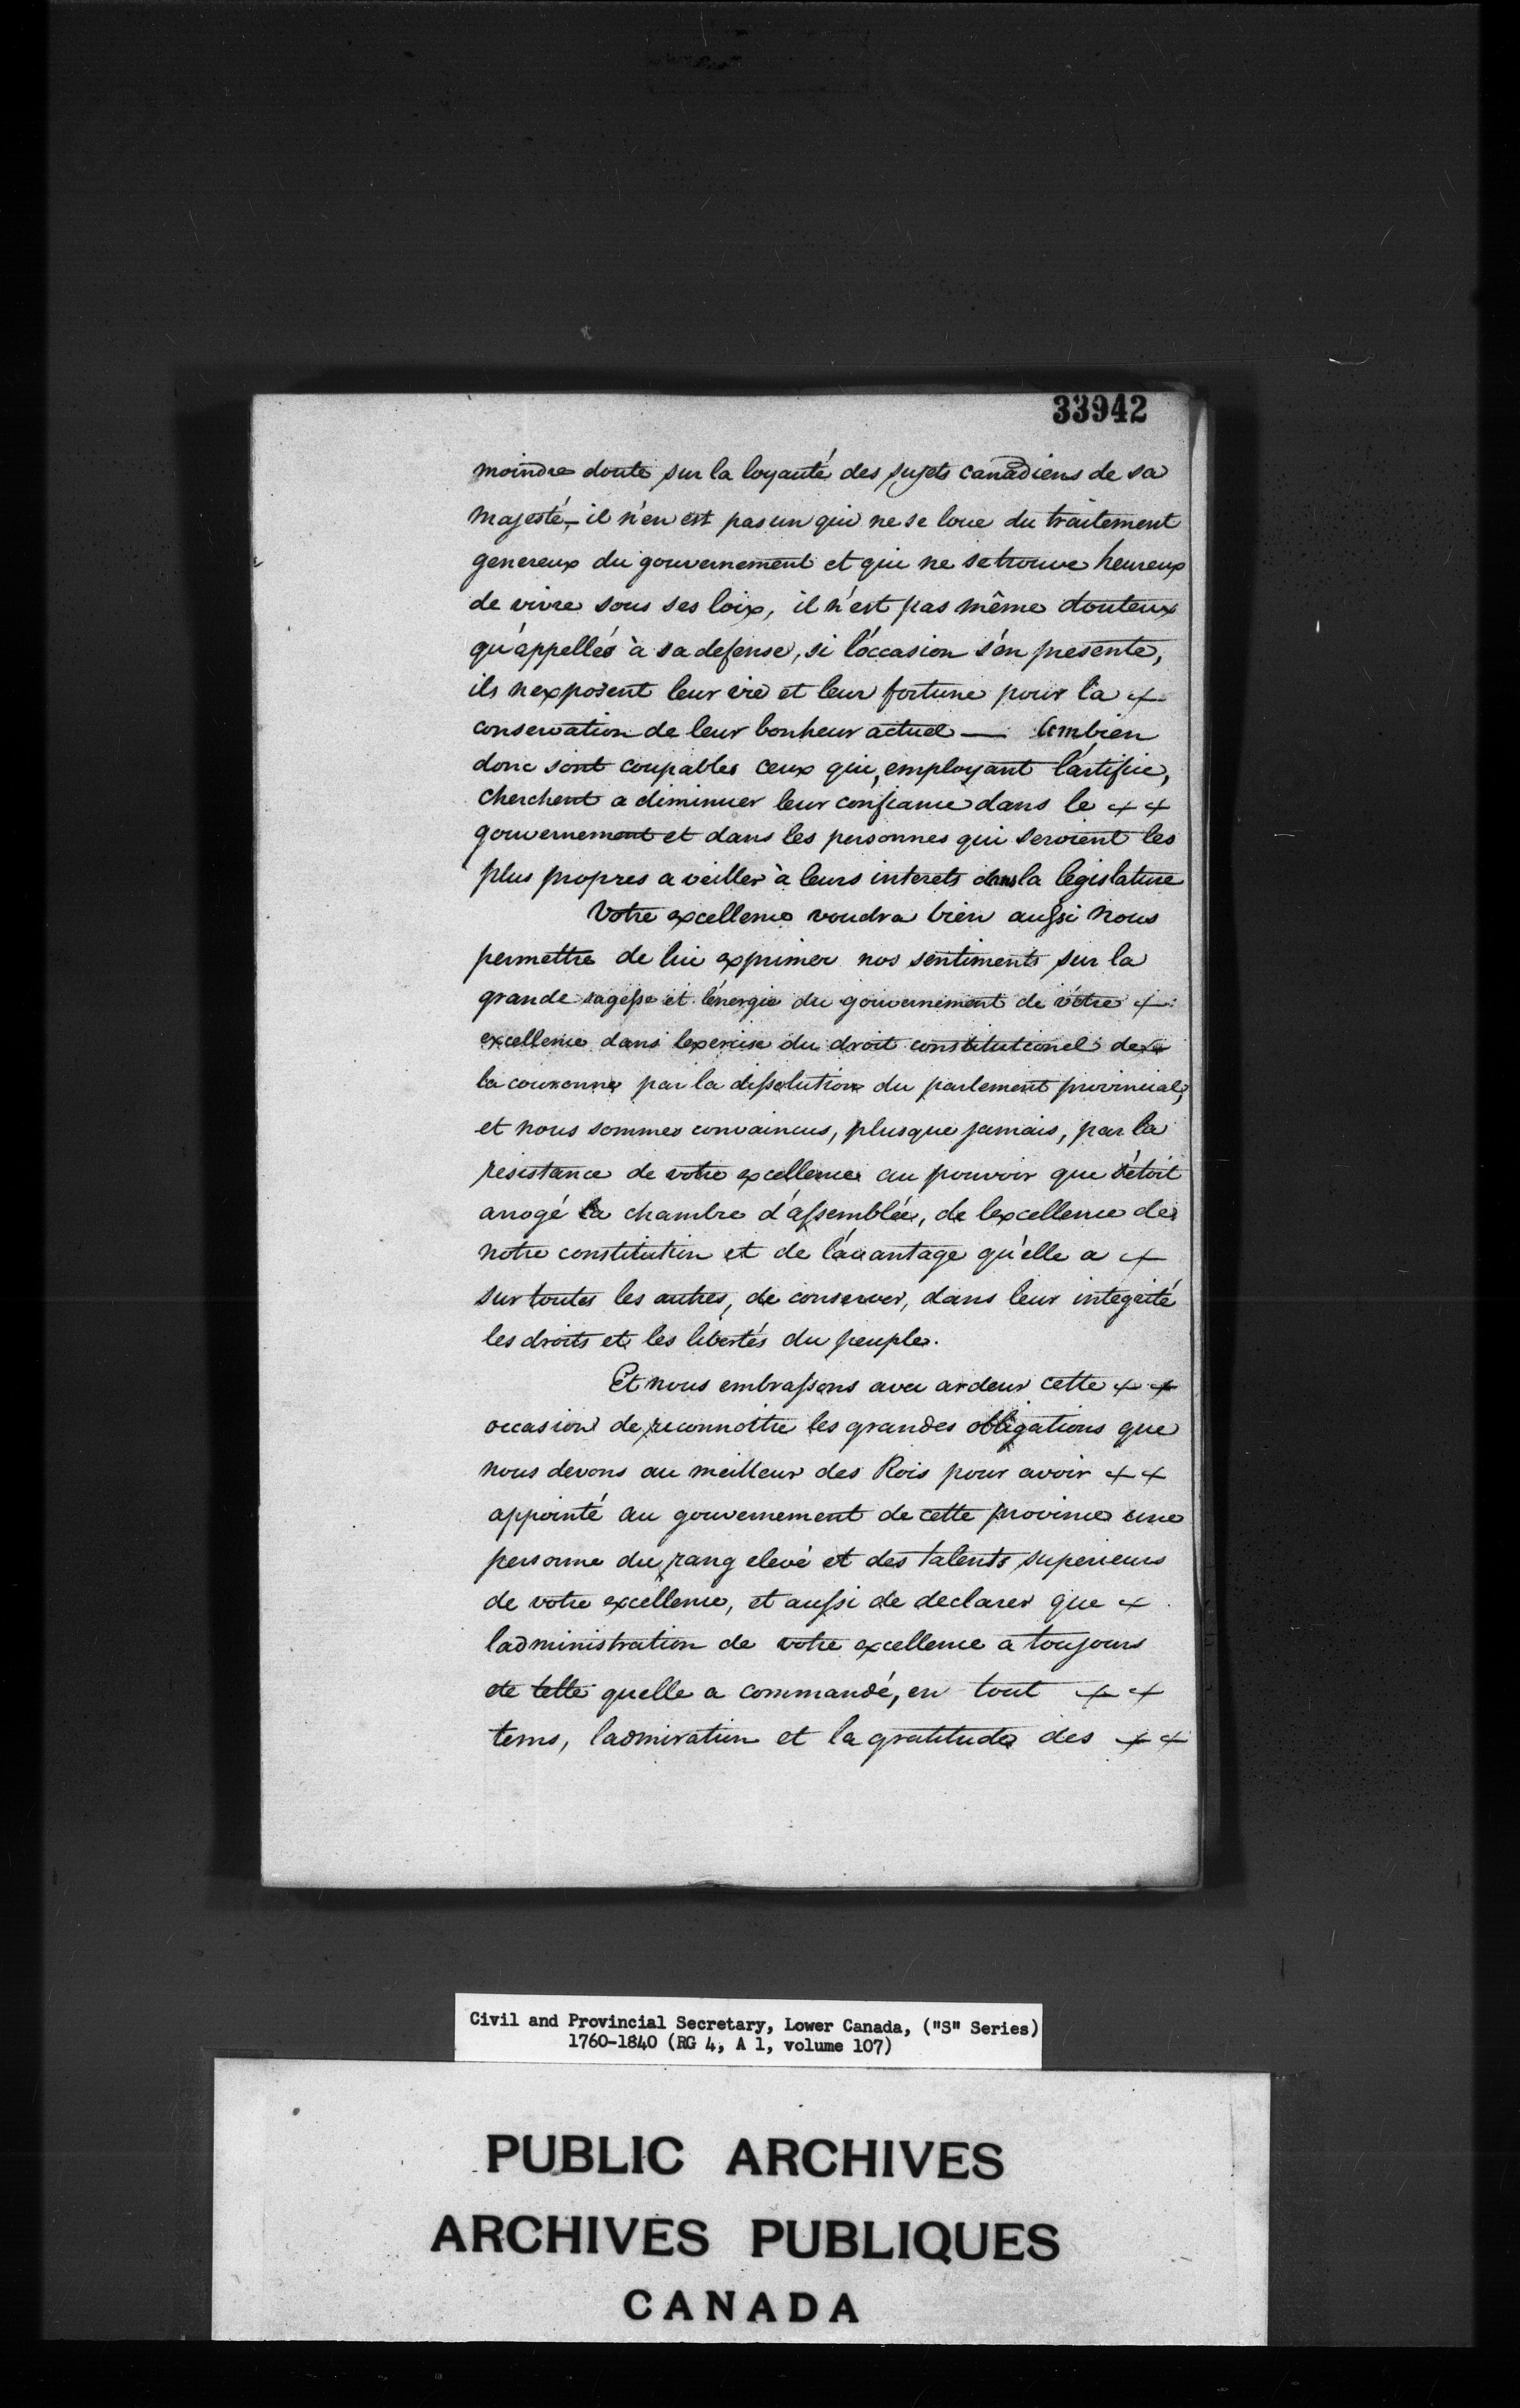 33942
moindre doute sur la loyauté des sujets canadiens de sa
majesté, il n'en est pas un qui ne se loue du traitement
genereux du gouvernement et qui ne se trouve heureux
de vivre sous ses loix, il n'est pas même douteux
qu'appellés à sa defense, si l'occasion s'en presente,
ils n'exposent leur vie et leur fortune pour la +
conservation de leur bonheur actuel — Combien
donc sont coupables ceux qui, employant l'artifice,
cherchent a diminuer leur confiance dans le + +
gouvernement et dans les personnes qui seroient les
plus propres a veiller à leurs interets dans la legislature
Votre excellence voudra bien aussi nous
permettre de lui exprimer nos sentiments sur la
grande sagesse et l'énergie du gouvernement de vôtre +
excellence dans lexercise du droit constitutionel de +
la couronne par la dissolution du parlement provincial,
et nous sommes convaincus, plusque jamais, par la
resistance de votre excellence au pouvoir que s'étoit
arrogé la chambre d'assemblée, de lexcellence de
notre constitution et de l'avantage qu'elle a +
sur toutes les autres, de conserver, dans leur integrité
les droits et les libertés du peuple.
Et nous embrassons avec ardeur cette + +
occasion de reconnoitre les grandes obligations que
nous devons au meilleur des Rois pour avoir + +
appointé au gouvernement de cette province une
personne du rang elevé et des talents superieurs
de votre excellence, et aussi de declarer que +
ladministration de votre excellence a toujours
ete telle quelle a commandé, en tout + +
tems, ladmiration et la gratitude des + +
Civil and Provincial Secretary, Lower Canada, ("S" Series)
1760-1840 (RG 4, A 1, volume 107)
PUBLIC ARCHIVES
ARCHIVES PUBLIQUES
CANADA